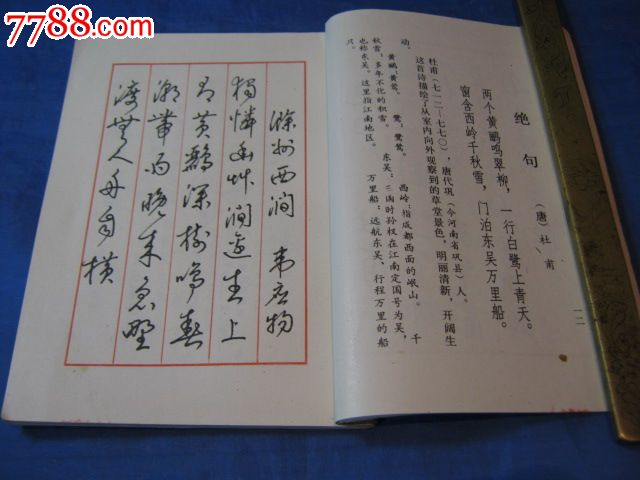 7788.com
绝句
（唐）杜甫
两个黄鹂鸣翠柳，一行白鹭上青天。
窗含西岭千秋雪，门泊东吴万里船。
杜甫（七一二—七七〇），唐代巩（今河南省巩县）人。
这首诗描绘了从室内向外观察到的草堂景色，明丽清新，开阔生
动。
黄鹂：黄莺。 鹭：鹭 西岭：指成都西面的岷山。 千
秋雪：多年不化的积雪。 东吴：三国时孙权在江南定国号为吴，
也称东吴。这里指江南地区。 万里船：远航东吴、行程万里的船
只。
一二
滁州西涧 韦应物
独怜幽草涧边生上
有黄鹂深树鸣春
潮带雨晚来急野
渡无人舟自横